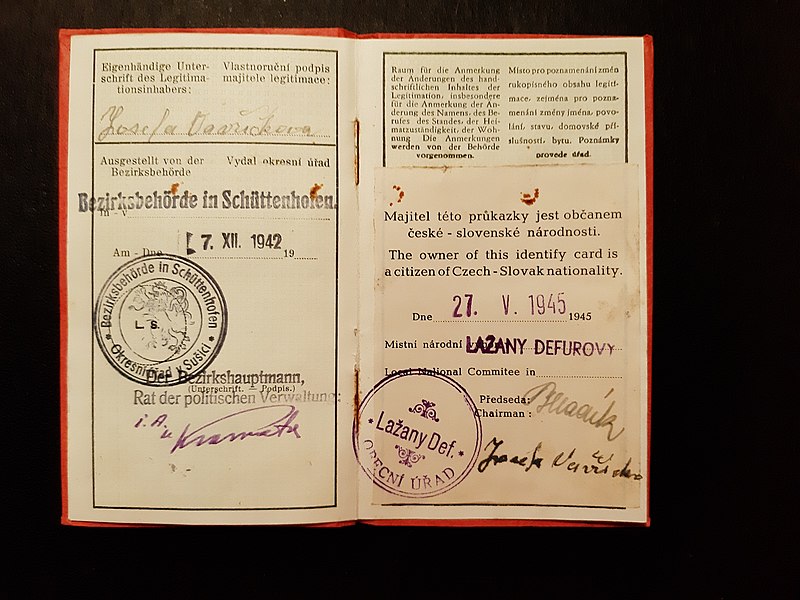 Eigenhändige Unter-
schrift des Legitima-
tionsinhabers:
Vlastnoruční podpis
majitele legitimace:
Josefa Vavřičkova
Ausgestellt von der
Bezirksbehörde
Vydal okresní úřad
Bezirksbehörde in Schüttenhofen.
in - v
Am - Dne 7. XII. 1942 19
Bezirksbehörde in Schüttenhofen
L. S.
Okresní úřad v Sušici
Der Bezirkshauptmann,
(Unterschrift. - Podpis.)
Rat der politischen Verwaltung:
i. A.
Raum für die Anmerkung
der Änderungen des hand-
schriftlichen Inhaltes der
Legitimation, insbesondere
für die Anmerkung der Än-
derung des Namens, des Be-
rufes des Standes, der Hei-
matzuständigkeit, der Woh-
nung Die Anmerkungen
werden von der Behörde
vorgenommen.
Místo pro poznamenání změn
rukopisného obsahu legiti-
mace, zejména pro pozna-
menání změny jména, povo-
lání, stavu, domovské pří-
slušnosti, bytu. Poznámky
provede úřad.
Majitel této průkazky jest občanem
české - slovenské národnosti.
The owner of this identify card is
a citizen of Czech - Slovak nationality.
Dne 27. V. 1945 1945
Místní národní LAŽANY DEFUROVY
Local National Commitee in
Předseda:
Chairman :
Lažany Def.
OBECNÍ ÚŘAD
Josefa